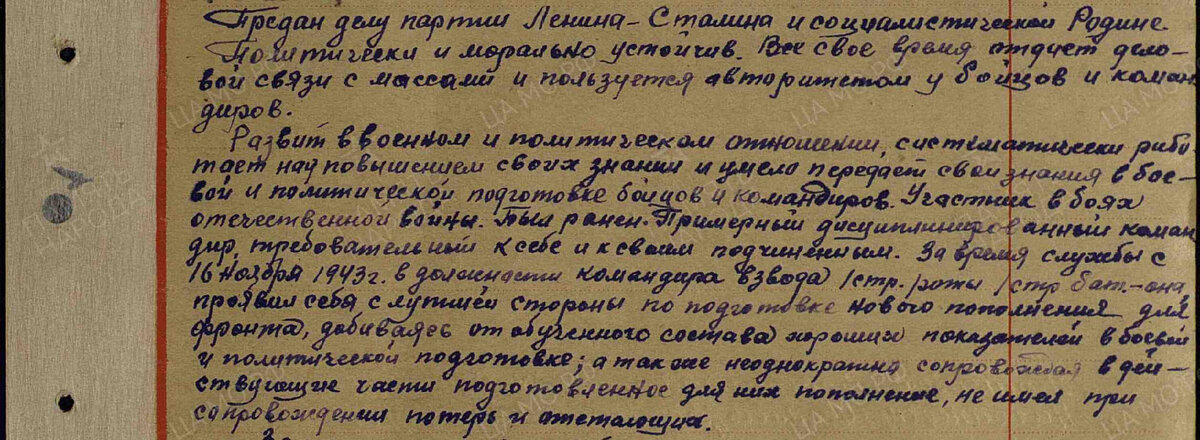 Предан делу партии Ленина-Сталина и социалистической Родине
Политически и морально устойчив. Все свое время отдает дело-
вой связи с массами и пользуется авторитетом у бойцов и коман
диров.
Развит в военном и политическом отношении, систематически рабо-
тает над повышением своих знаний и умело передаёт свои знания в бое-
вой и политической подготовке бойцов и командиров. Участник в боях
отечественной войны. Был ранен. Примерный дисциплинированный коман
дир, требовательный к себе и к своим подчиненным. За время службы с
16 ноября 1943 г. в должности командира взвода 1стр. роты 1стр бат-она,
проявил себя с лутшей стороны по подготовке нового пополнения для
фронта, добиваясь от обученного состава хороших показателей в боевой
и политической подготовке; а так же неоднократно сопровождая в дей-
ствующие части подготовленное для них пополнение, не имел при
сопровождении потерь и отстающих.